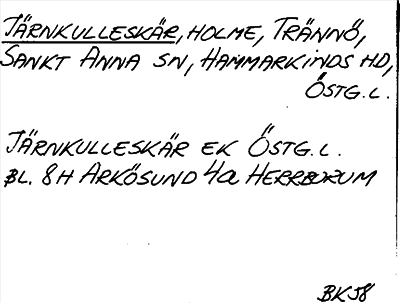 JÄRNKULLESKÄR, HOLME, TRÄNNÖ,
SANKT ANNA SN, HAMMARKINDS HD,
ÖSTG. L.
JÄRNKULLESKÄR EK ÖSTG. L.
BL. 8H ARKÖSUND 4a HERRBORUM
BK58